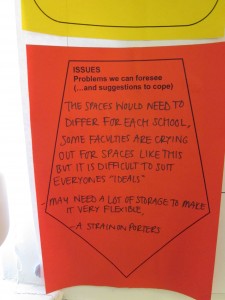 ISSUES
Problems we can foresee
(...and suggestions to cope)
THE SPACES WOULD NEED TO
DIFFER FOR EACH SCHOOL.
SOME FACULTIES ARE CRYING
OUT FOR SPACES LIKE THIS
BUT IT IS DIFFICULT TO SUIT
EVERYONES "IDEALS"
- MAY NEED A LOT OF STORAGE TO MAKE
IT VERY FLEXIBLE.
- A STRAIN ON PORTERS